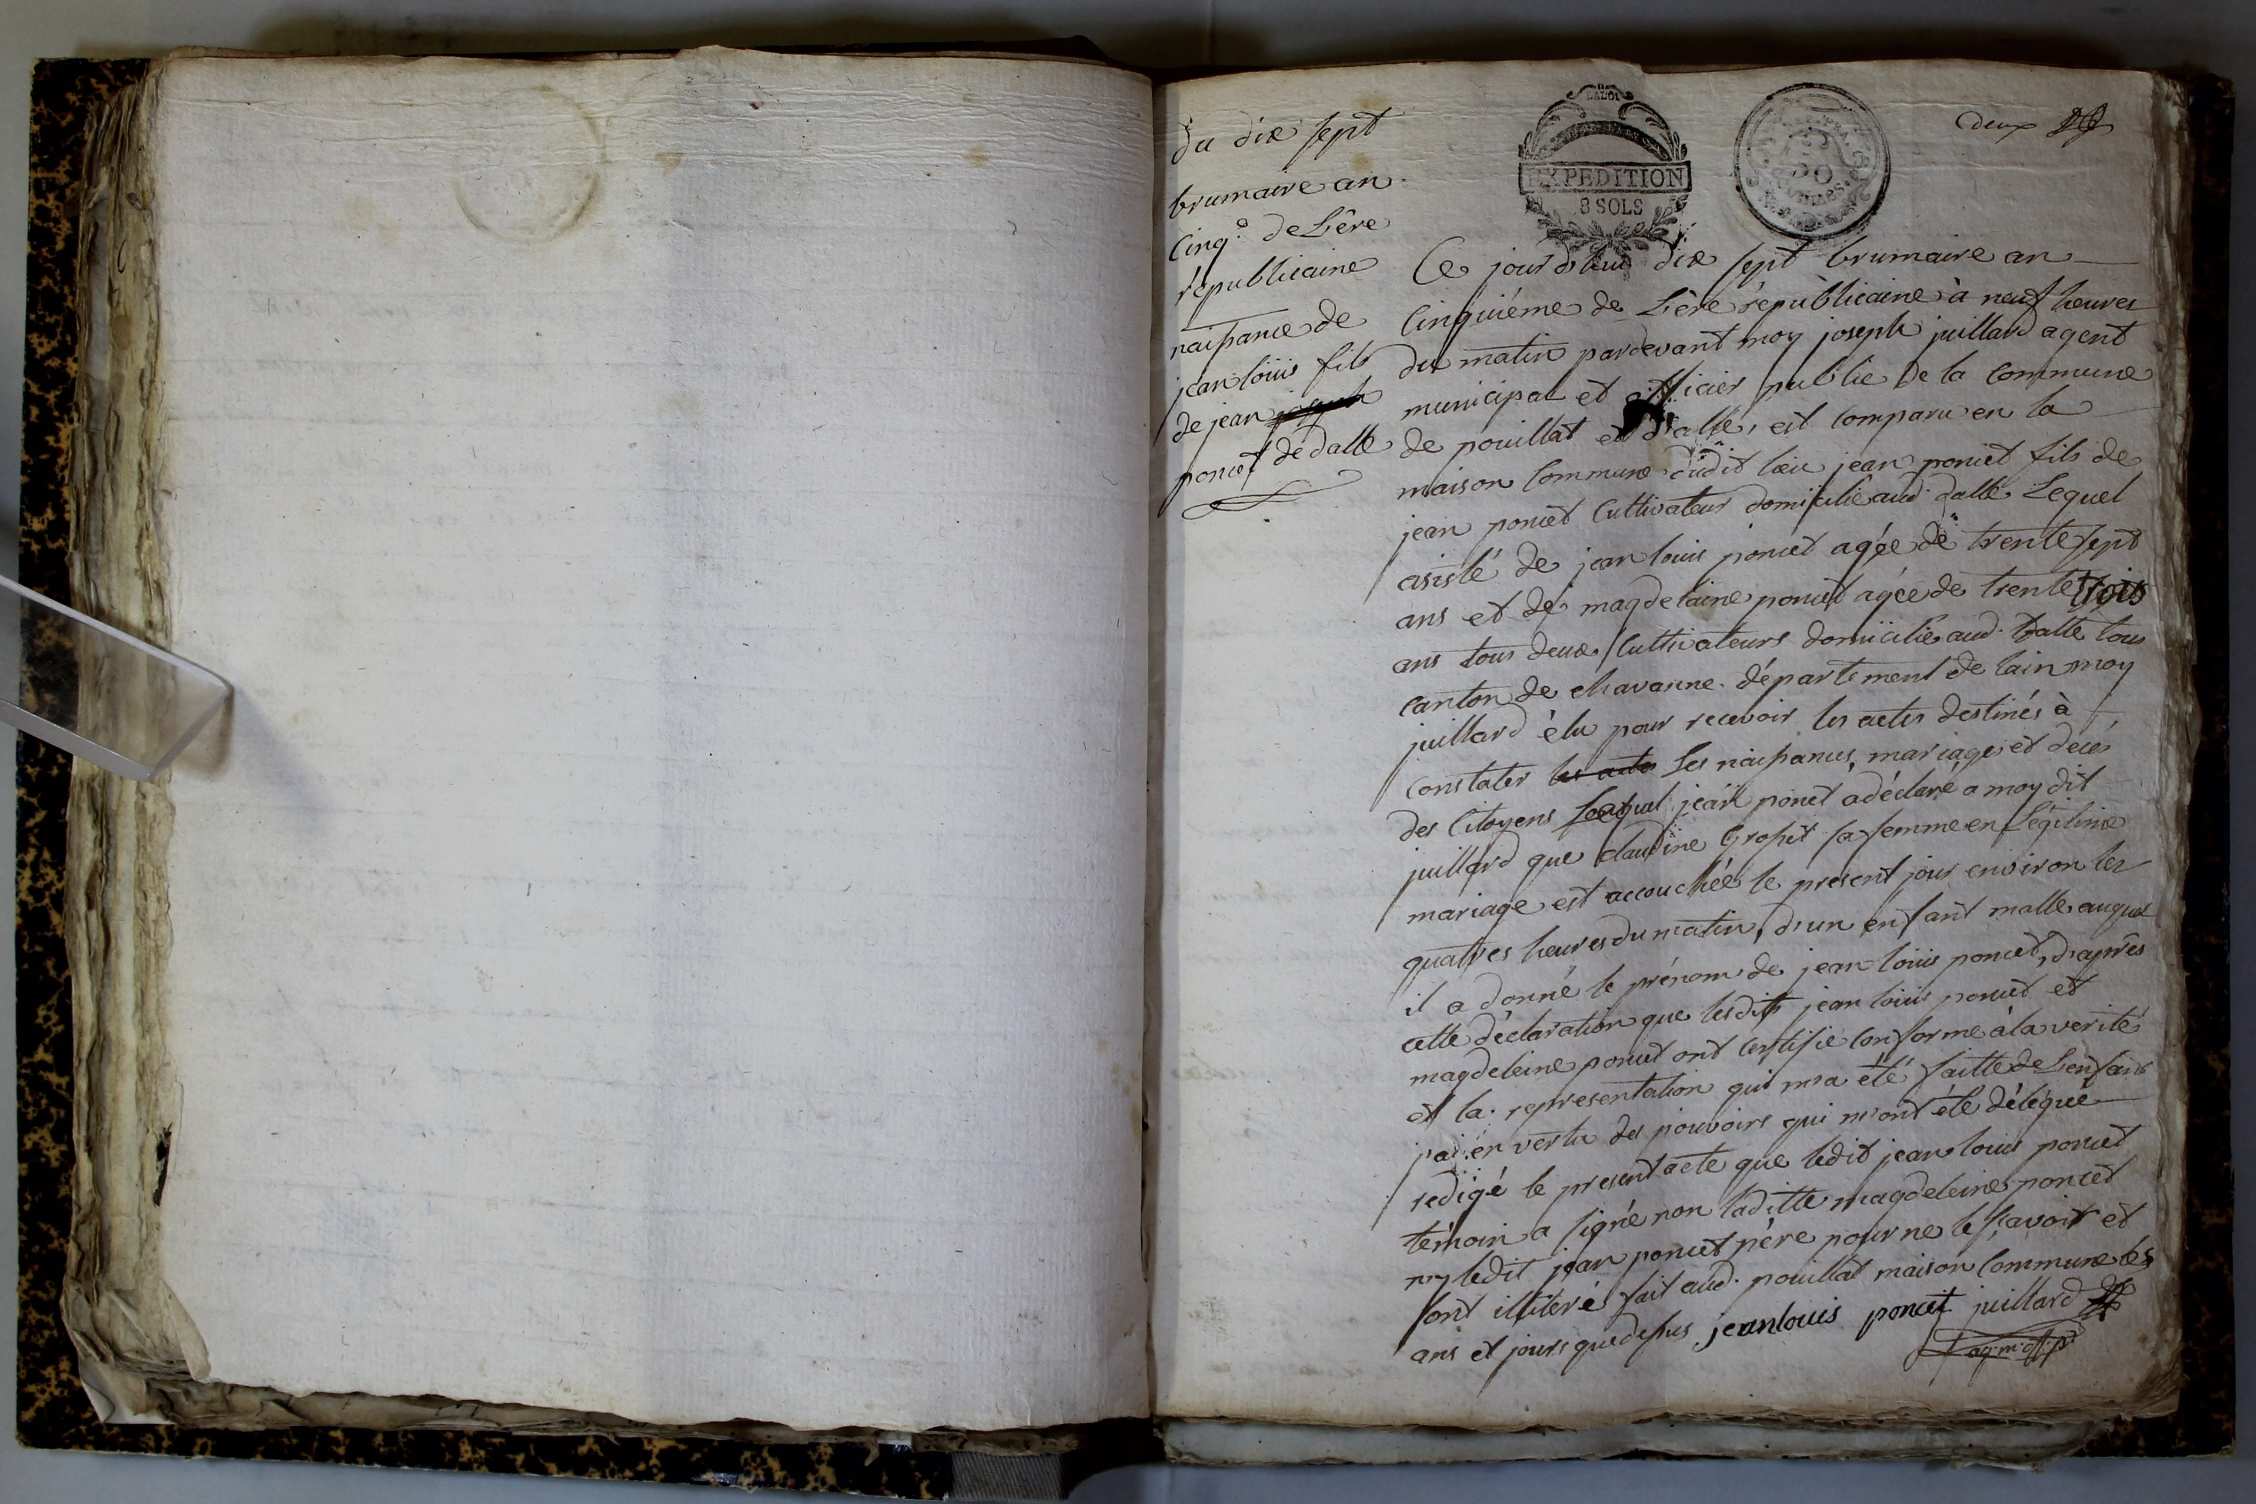 deux
LA LOI
EXPEDITION
8 SOLS
50
du dix sept
brumaire an
Cinq.e de L'êre
républicaine
naissance de
jean loüis fils
de jean joseph
poncet de dalle
Ce jourd'hui dix sept brumaire an
Cinquiéme de L'êre républicaine à neuf heures
du matin pardevant moy joseph juillard agent
municipal et officier public de la Commune
de pouillat et dalle, est comparu en la
maison Commune dudit lieu jean poncet fils de
jean poncet Cultivateur domicilié aud. dalle Lequel
asisté de jean louis poncet agée de trente sept
ans et de magdelaine poncet agée de trente trois
ans tous deux Cultivateurs domicilié aud. dalle tous
canton de chavanne département de lain moy
juillard élu pour recevoir les actes destinés à
Constater les actes Les naissances, mariages et décés
des Citoyens Lequel jean poncet a déclaré a moy dit
juillard que claudine Grosset sa femme en Légitime
mariage est accouchée le present jour environ les
quatres heures du matin, d'un enfant malle auquel
il a donné le prénom de jean loüis poncet, d'après
cette déclaration que lesdits jean loüis poncet et
magdeleine poncet ont certifié conforme à la verité
et la representation qui m'a été faitte de L'enfant
j'ai en vertu des pouvoirs qui m'ont été délégué
redigé le present acte que ledit jean louis poncet
témoin a signé non laditte magdeleine poncet
ny ledit jean poncet père pour ne le sçavoir et
sont illiteré fait aud. pouillat maison Commune les
ans et jours que dessus jean louis poncet juillard
ag. m. off. p.